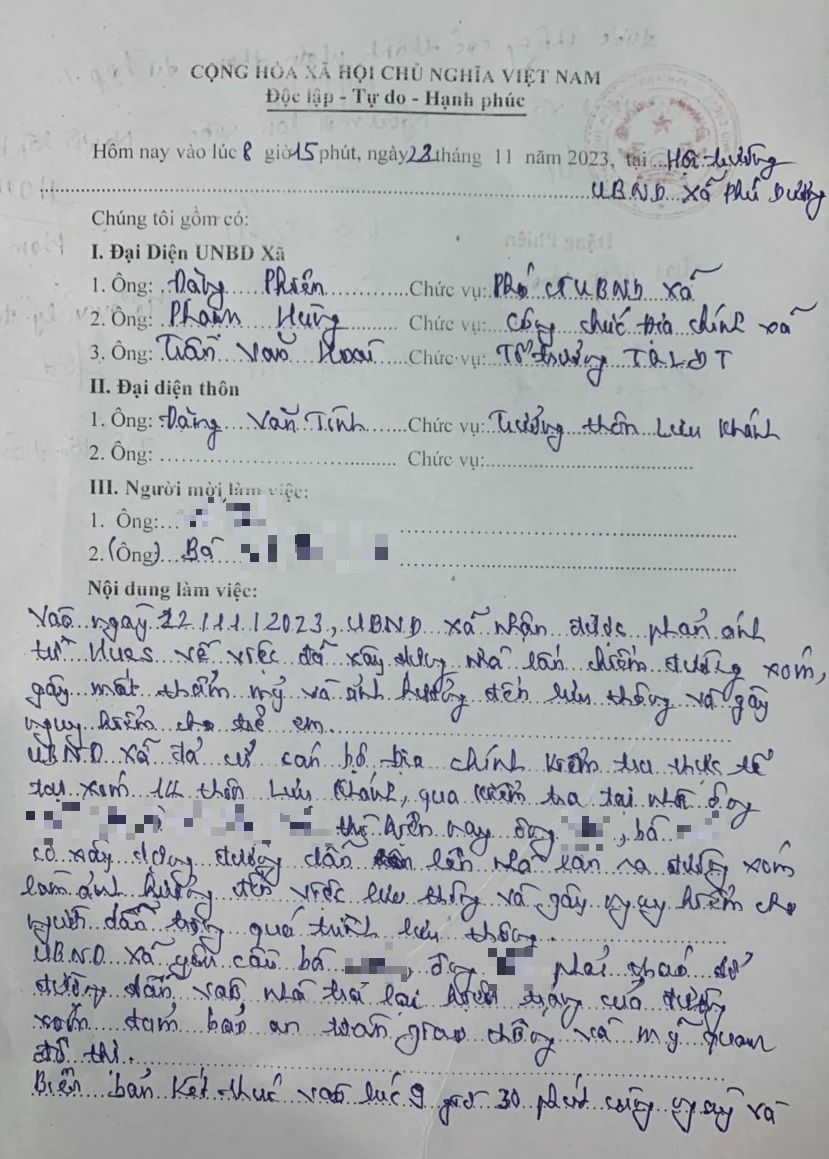 CỘNG HÒA XÃ HỘI CHỦ NGHĨA VIỆT NAM
Độc lập - Tự do - Hạnh phúc
Hôm nay vào lúc 8 giờ 15 phút, ngày 23 tháng 11 năm 2023, tại Hội trường
UBND xã Phú Dương
Chúng tôi gồm có:
I. Đại Diện UNBD Xã
1. Ông: Đặng Phiên Chức vụ: Phó CT UBND xã
2. Ông: Phạm Hưng Chức vụ: Công chức địa chính xã
3. Ông: Trần Văn Hoài Chức vụ: Tổ trưởng TQLĐT
II. Đại diện thôn
1. Ông: Đặng Văn Tình Chức vụ: Trưởng thôn Lưu Khánh
2. Ông: Chức vụ:
III. Người mời làm việc:
1. Ông:
2. (Ông) Bà
Nội dung làm việc:
Vào ngày 22/11/2023, UBND xã nhận được phản ánh
từ Hues về việc đã xây dựng nhà lấn chiếm đường xóm,
gây mất thẩm mỹ và ảnh hưởng đến lưu thông và gây
nguy hiểm cho trẻ em.
UBND xã đã cử cán bộ địa chính kiểm tra thực tế
tại xóm 14 thôn Lưu Khánh, qua kiểm tra tại nhà ông
thì hiện nay ông , bà
có xây dựng đường dẫn lên nhà lấn ra đường xóm
làm ảnh hưởng đến việc lưu thông và gây nguy hiểm cho
người dân trong quá trình lưu thông.
UBND xã yêu cầu bà , ông phải tháo dỡ
đường dẫn vào nhà trả lại hiện trạng của đường
xóm đảm bảo an toàn giao thông và mỹ quan
đô thị.
Biên bản kết thúc vào lúc 9 giờ 30 phút cùng ngày và
Đặng Phiên